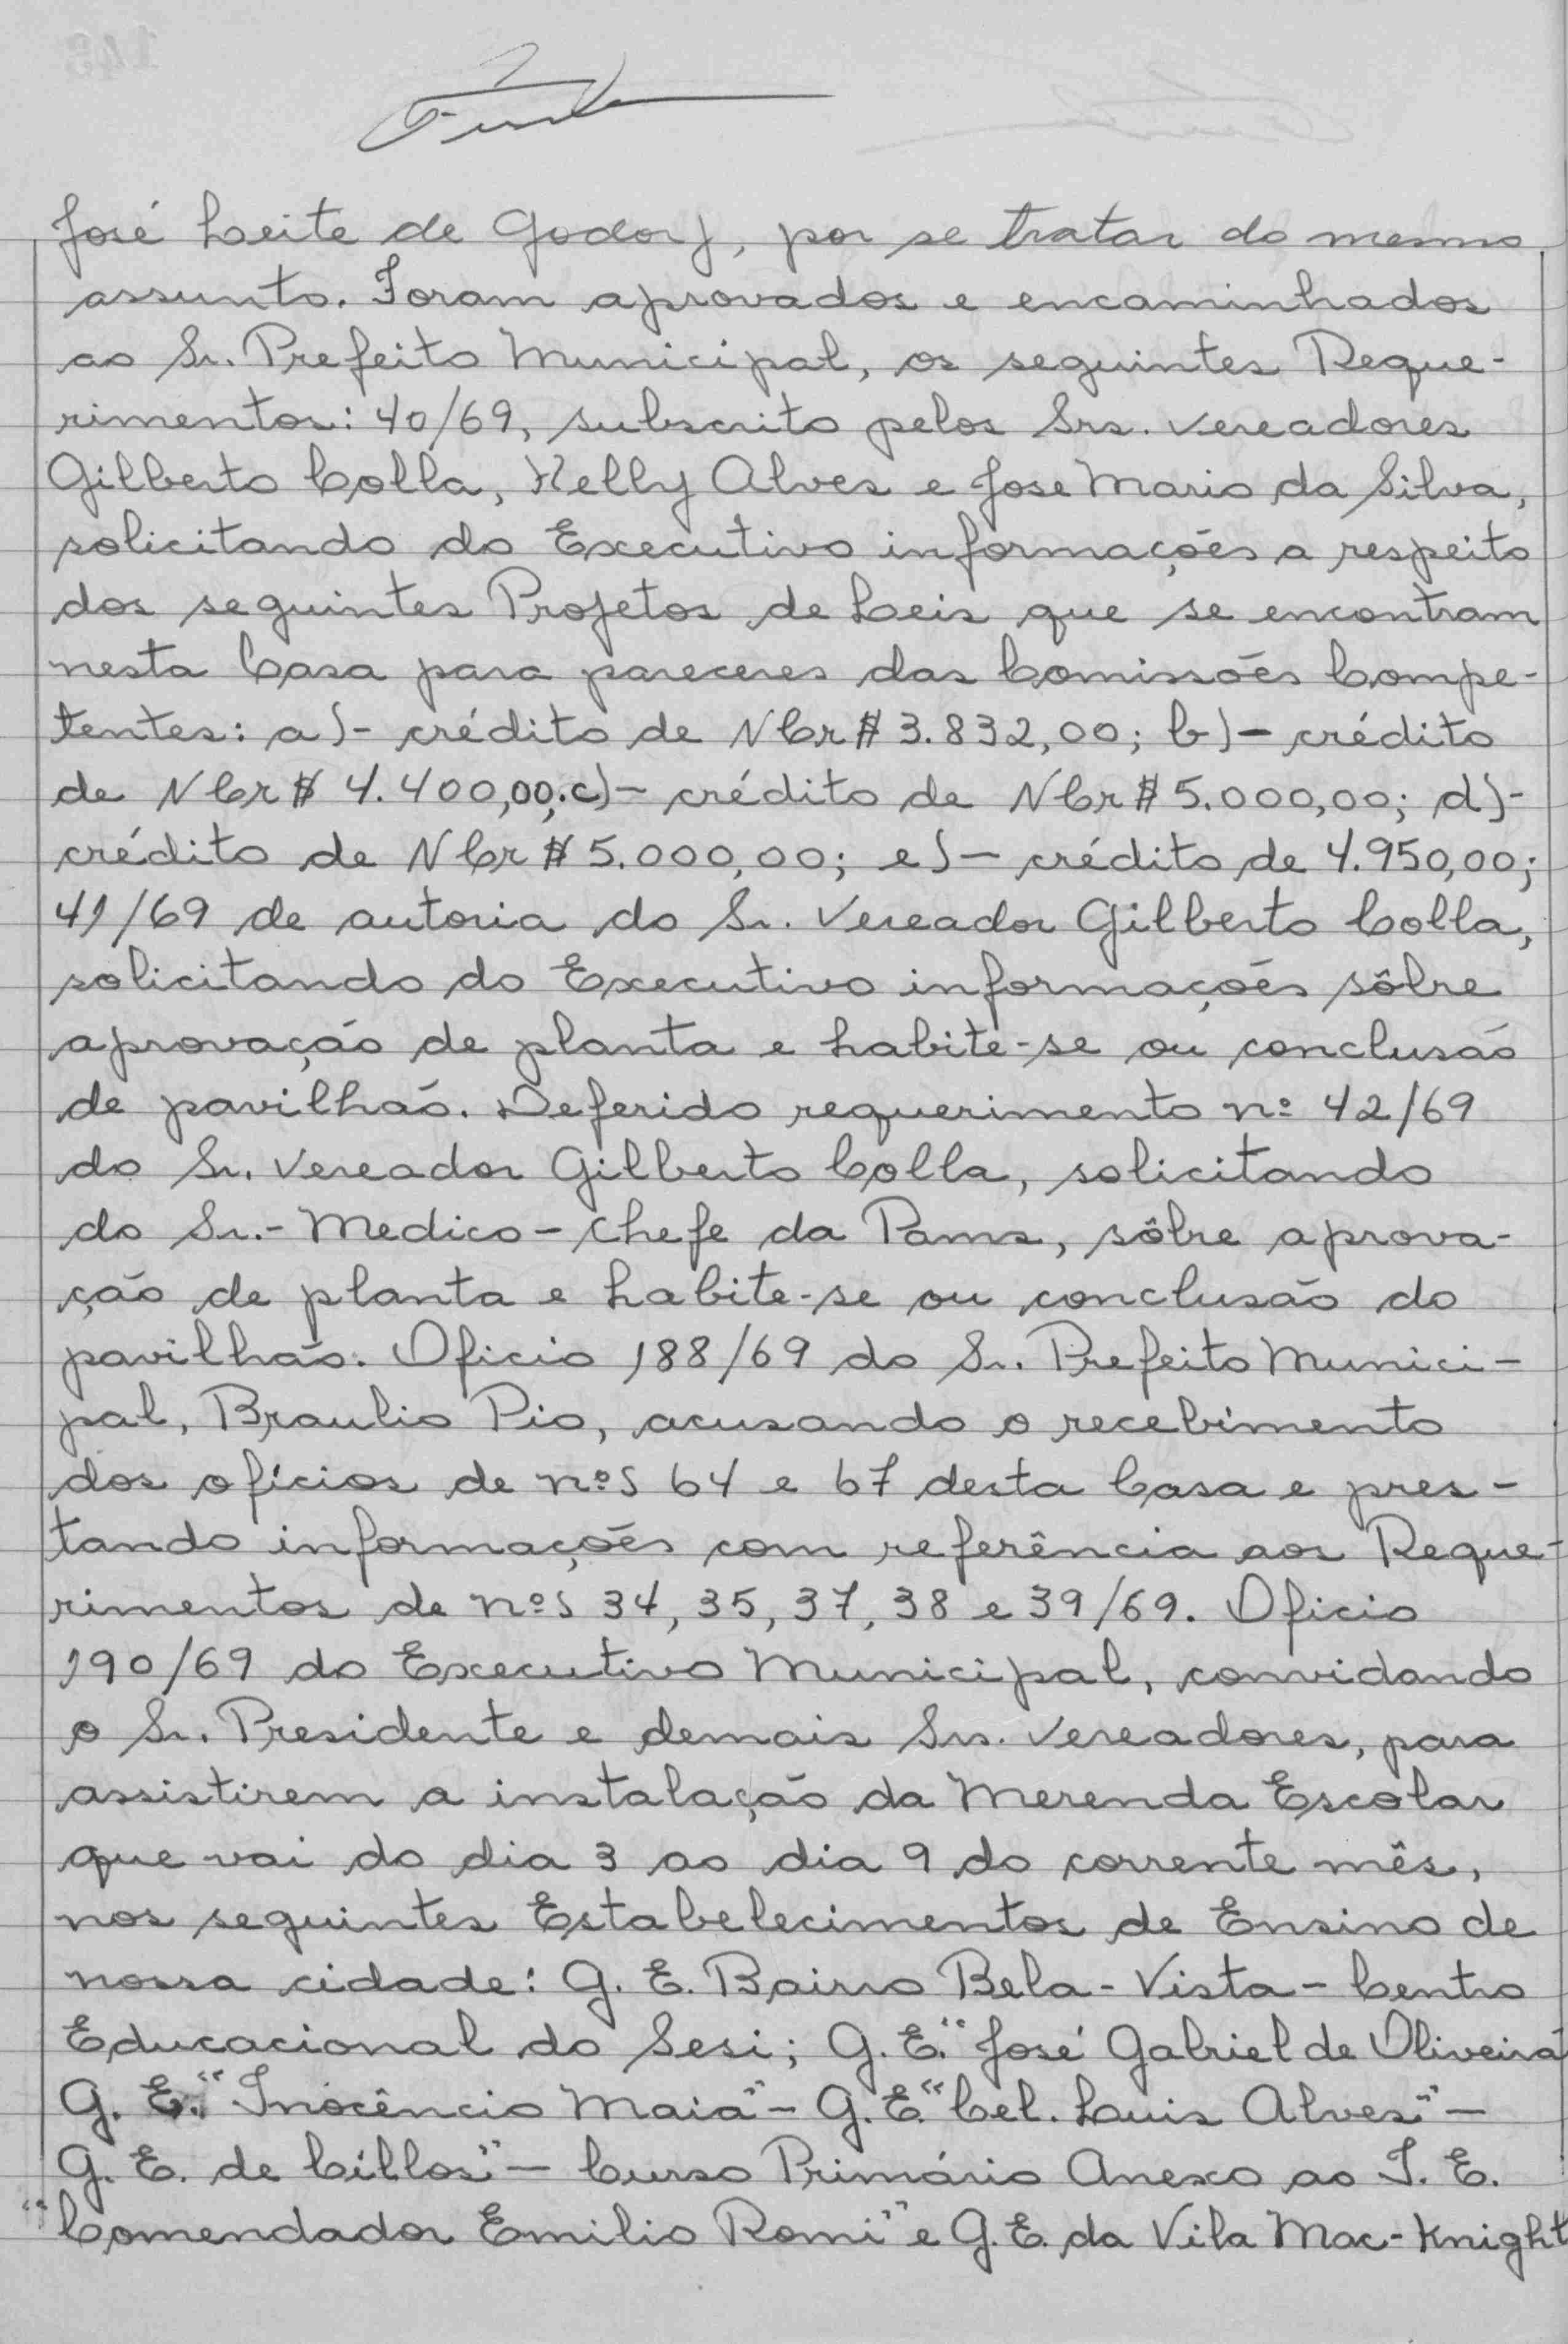 José Leite de Godoy, por se tratar do mesmo
assunto. Foram aprovados e encaminhados
ao Sr. Prefeito Municipal, os seguintes Reque-
rimentos: 40/69, subscrito pelos Srs. Vereadores
Gilberto Colla, Kelly Alves e Jose Mario da Silva,
solicitando do Executivo informações a respeito
dos seguintes Projetos de Leis que se encontram
nesta Casa para pareceres das Comissões Compe-
tentes: a)- crédito de NCr$ 3.832,00; b)- crédito
de NCr$ 4.400,00; c)- crédito de NCr$ 5.000,00; d)-
crédito de NCr$ 5.000,00; e)- crédito de 4.950,00;
41/69 de autoria do Sr. Vereador Gilberto Colla,
solicitando do Executivo informações sôbre
aprovação de planta e habite-se ou conclusão
de pavilhão. Deferido requerimento nº 42/69
do Sr. Vereador Gilberto Colla, solicitando
do Sr.- Medico-Chefe da Pams, sôbre aprova-
ção de planta e habite-se ou conclusão do
pavilhão. Oficio 188/69 do Sr. Prefeito Munici-
pal, Braulio Pio, acusando o recebimento
dos ofícios de nºs 64 e 67 desta Casa e pres-
tando informações com referência aos Reque-
rimentos de nºs 34, 35, 37, 38 e 39/69. Oficio
190/69 do Executivo Municipal, convidando
o Sr. Presidente e demais Srs. Vereadores, para
assistirem a instalação da Merenda Escolar
que vai do dia 3 ao dia 9 do corrente mês,
nos seguintes Estabelecimentos de Ensino de
nossa cidade: G. E. Bairro Bela-Vista - Centro
Educacional do Sesi; G. E. "José Gabriel de Oliveira"
G. E. "Inocêncio Maia" - G. E. "Cel. Luis Alves" -
G. E. de Cillos" - Curso Primário Anexo ao I. E.
"Comendador Emilio Romi" e G. E. da Vila Mac-Knight